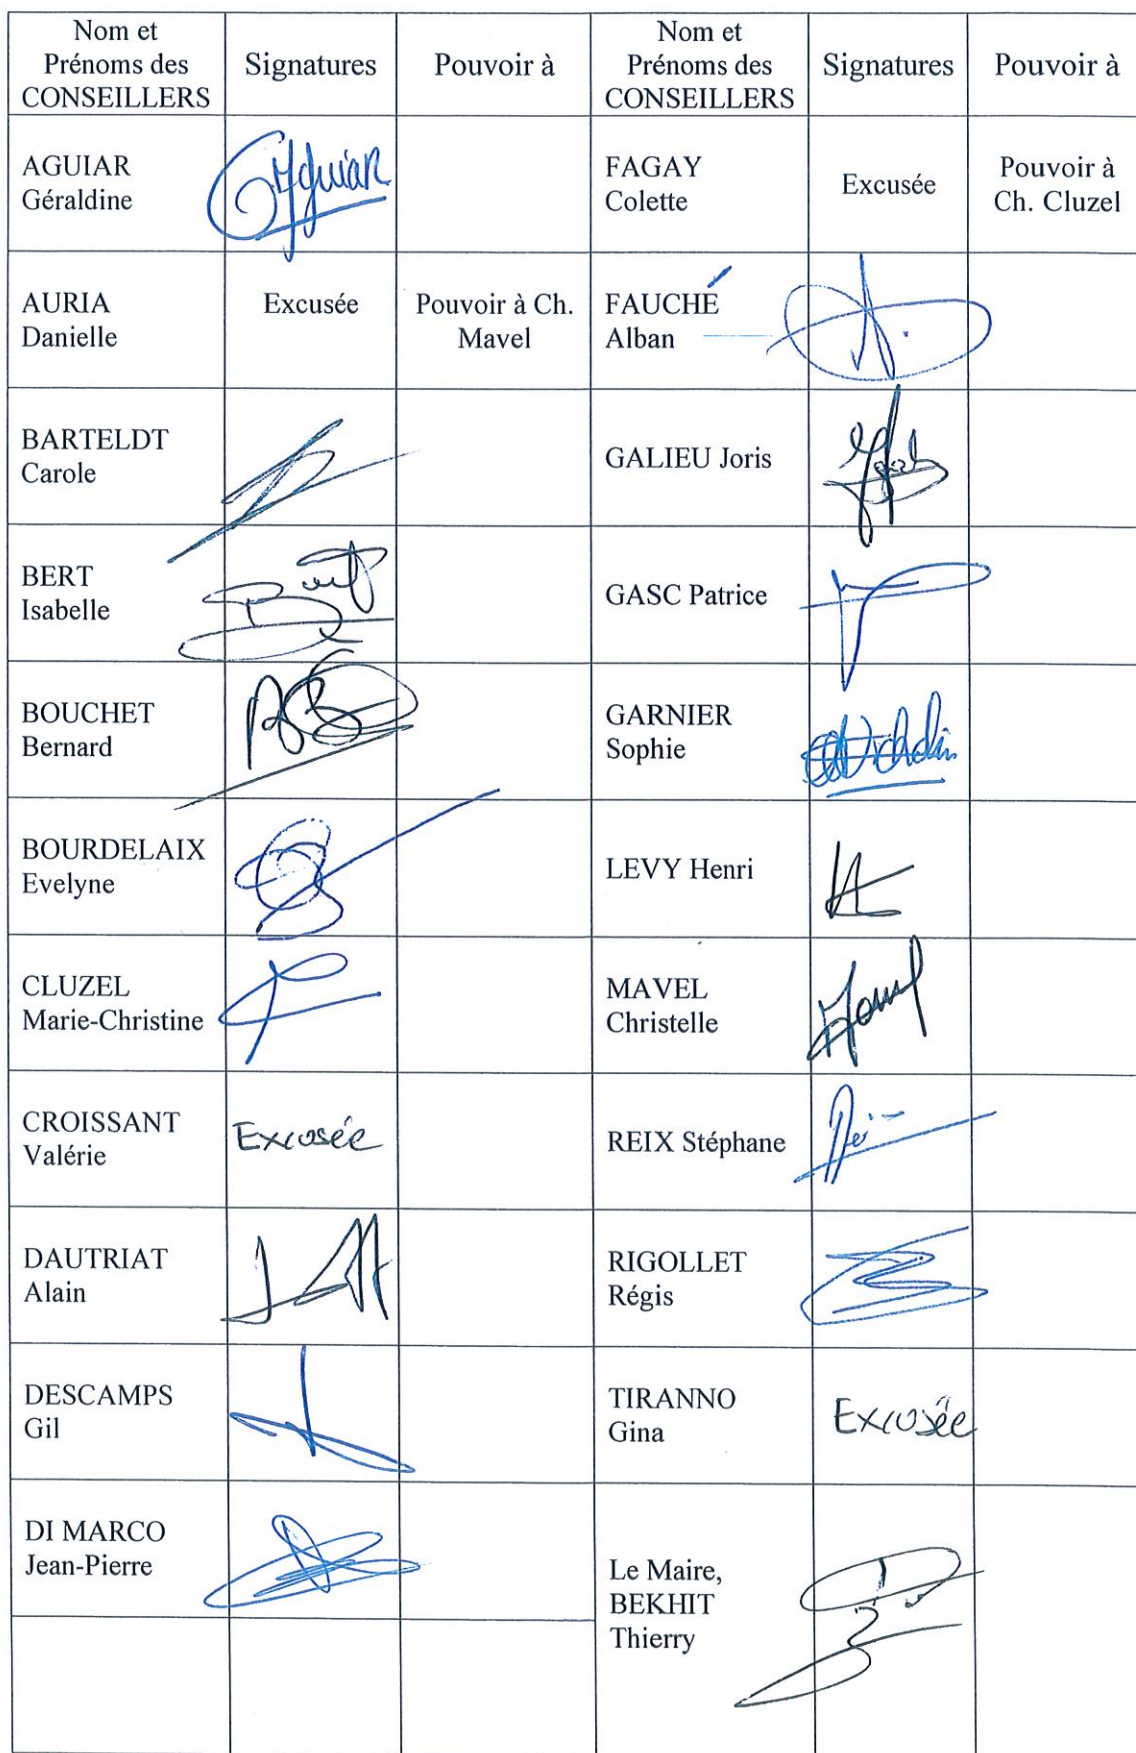 Nom et
Prénoms des
CONSEILLERS
Signatures
Pouvoir à
Nom et
Prénoms des
CONSEILLERS
Signatures
Pouvoir à
AGUIAR
Géraldine
GAguiar
FAGAY
Colette
Excusée
Pouvoir à
Ch. Cluzel
AURIA
Danielle
Excusée
Pouvoir à Ch.
Mavel
FAUCHÉ
Alban
BARTELDT
Carole
GALIEU Joris
BERT
Isabelle
GASC Patrice
BOUCHET
Bernard
GARNIER
Sophie
BOURDELAIX
Evelyne
LEVY Henri
CLUZEL
Marie-Christine
MAVEL
Christelle
CROISSANT
Valérie
Excusée
REIX Stéphane
DAUTRIAT
Alain
RIGOLLET
Régis
DESCAMPS
Gil
TIRANNO
Gina
Excusée
DI MARCO
Jean-Pierre
Le Maire,
BEKHIT
Thierry